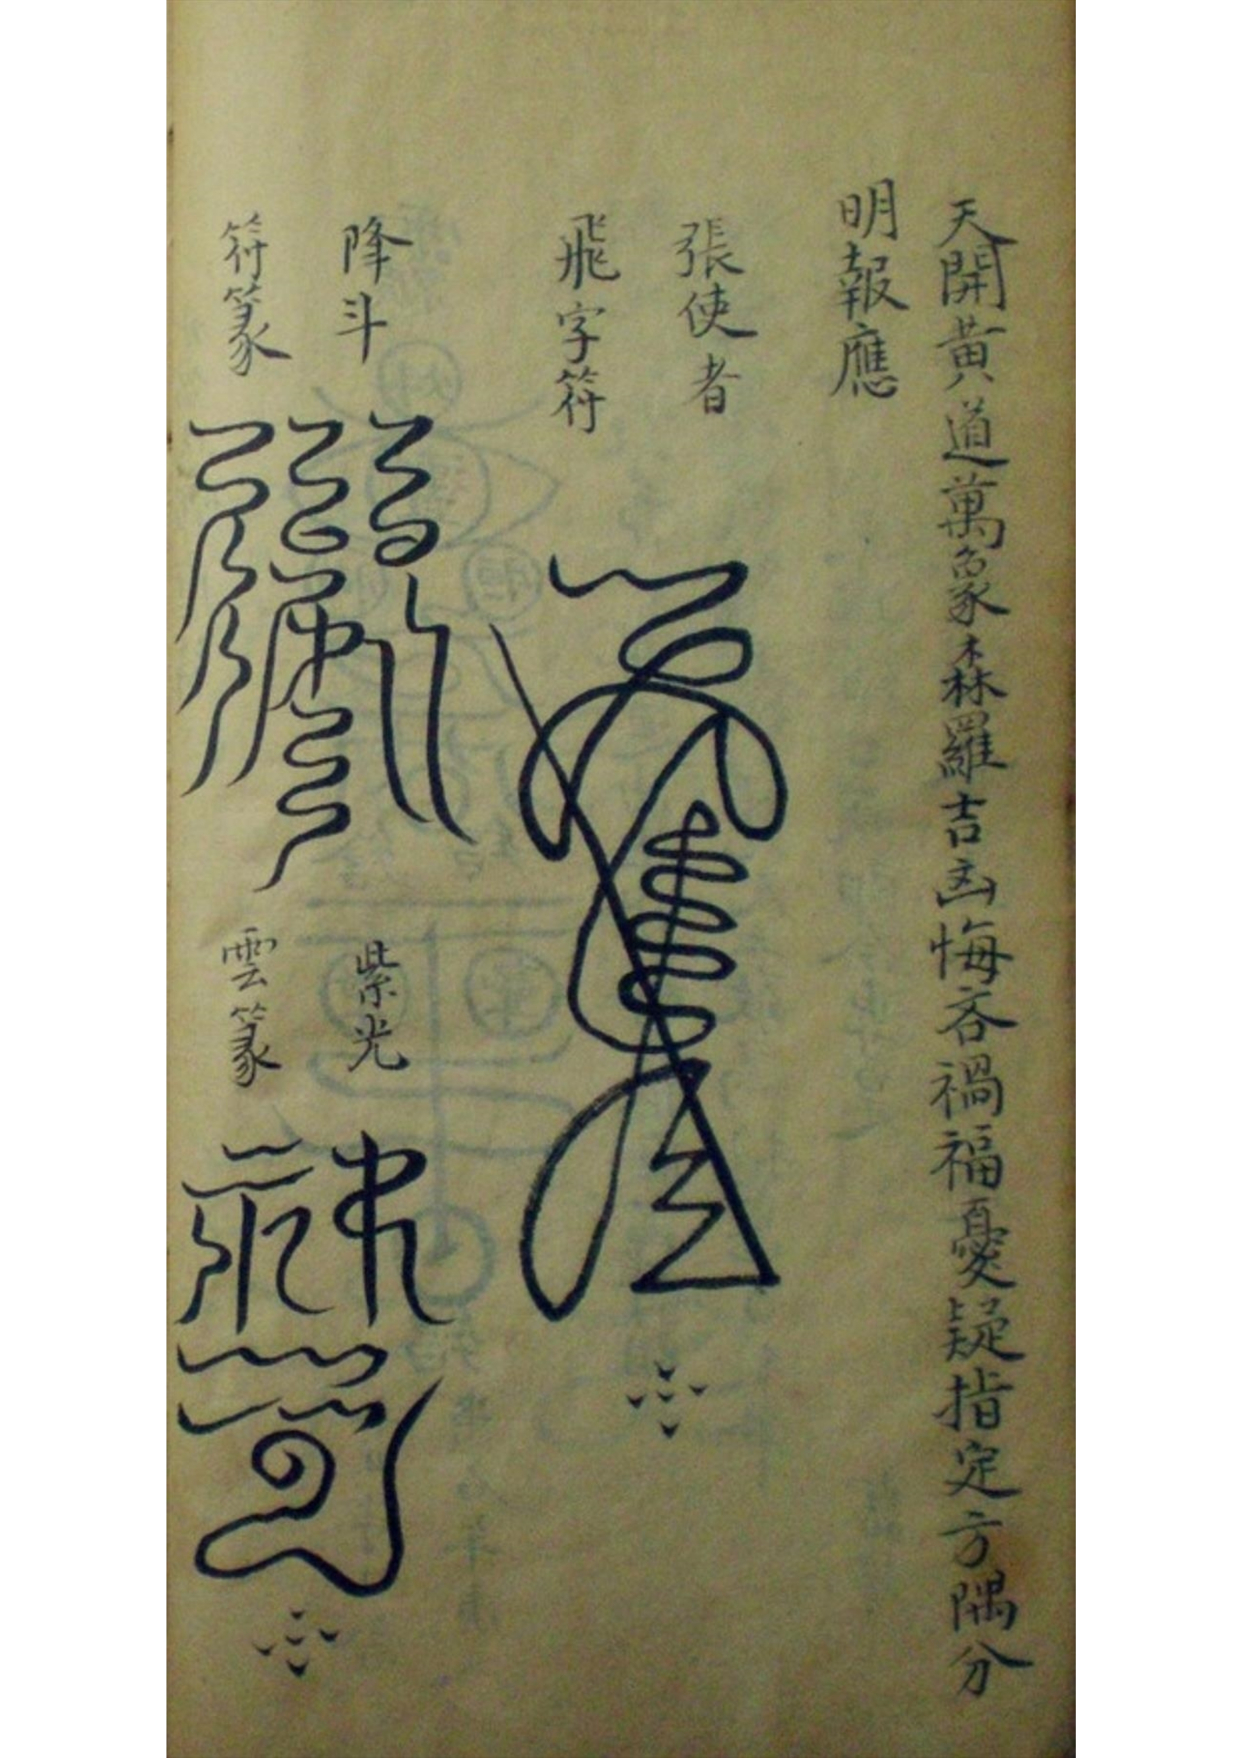 天開黄道萬象森羅吉凶悔吝禍福憂疑指定方隅分
明報應
張使者
飛字符
降斗
符篆
紫光
雲篆